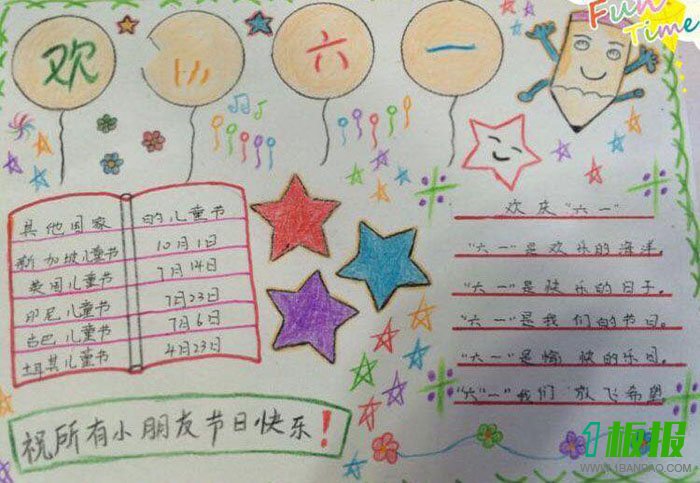 Fun Time
欢 六一
其他国家 的儿童节
新加坡儿童节 10月1日
国儿童节 7月14日
印尼儿童节 7月23日
古巴儿童节 7月6日
土耳其儿童节 4月23日
祝所有小朋友节日快乐！
欢庆“六一”
“六一”是欢乐的海洋。
“六一”是快乐的日子。
“六一”是我们的节日。
“六一”是愉快的乐
“六一”我们放飞希望。
1板报
WWW.1BANBAO.COM